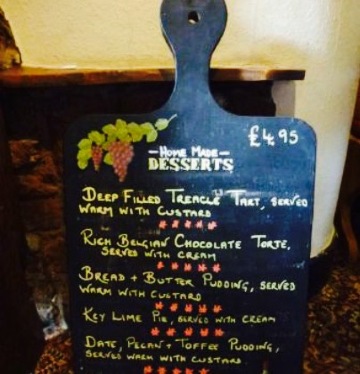 £4.95
HOME MADE
DESSERTS
DEEP FILLED TREACLE TART, SERVED
WARM WITH CUSTARD
RICH BELGIAN CHOCOLATE TORTE,
SERVED WITH CREAM
BREAD + BUTTER PUDDING, SERVED
WARM WITH CUSTARD
KEY LIME PIE, SERVED WITH CREAM
DATE, PECAN + TOFFEE PUDDING,
SERVED WARM WITH CUSTARD